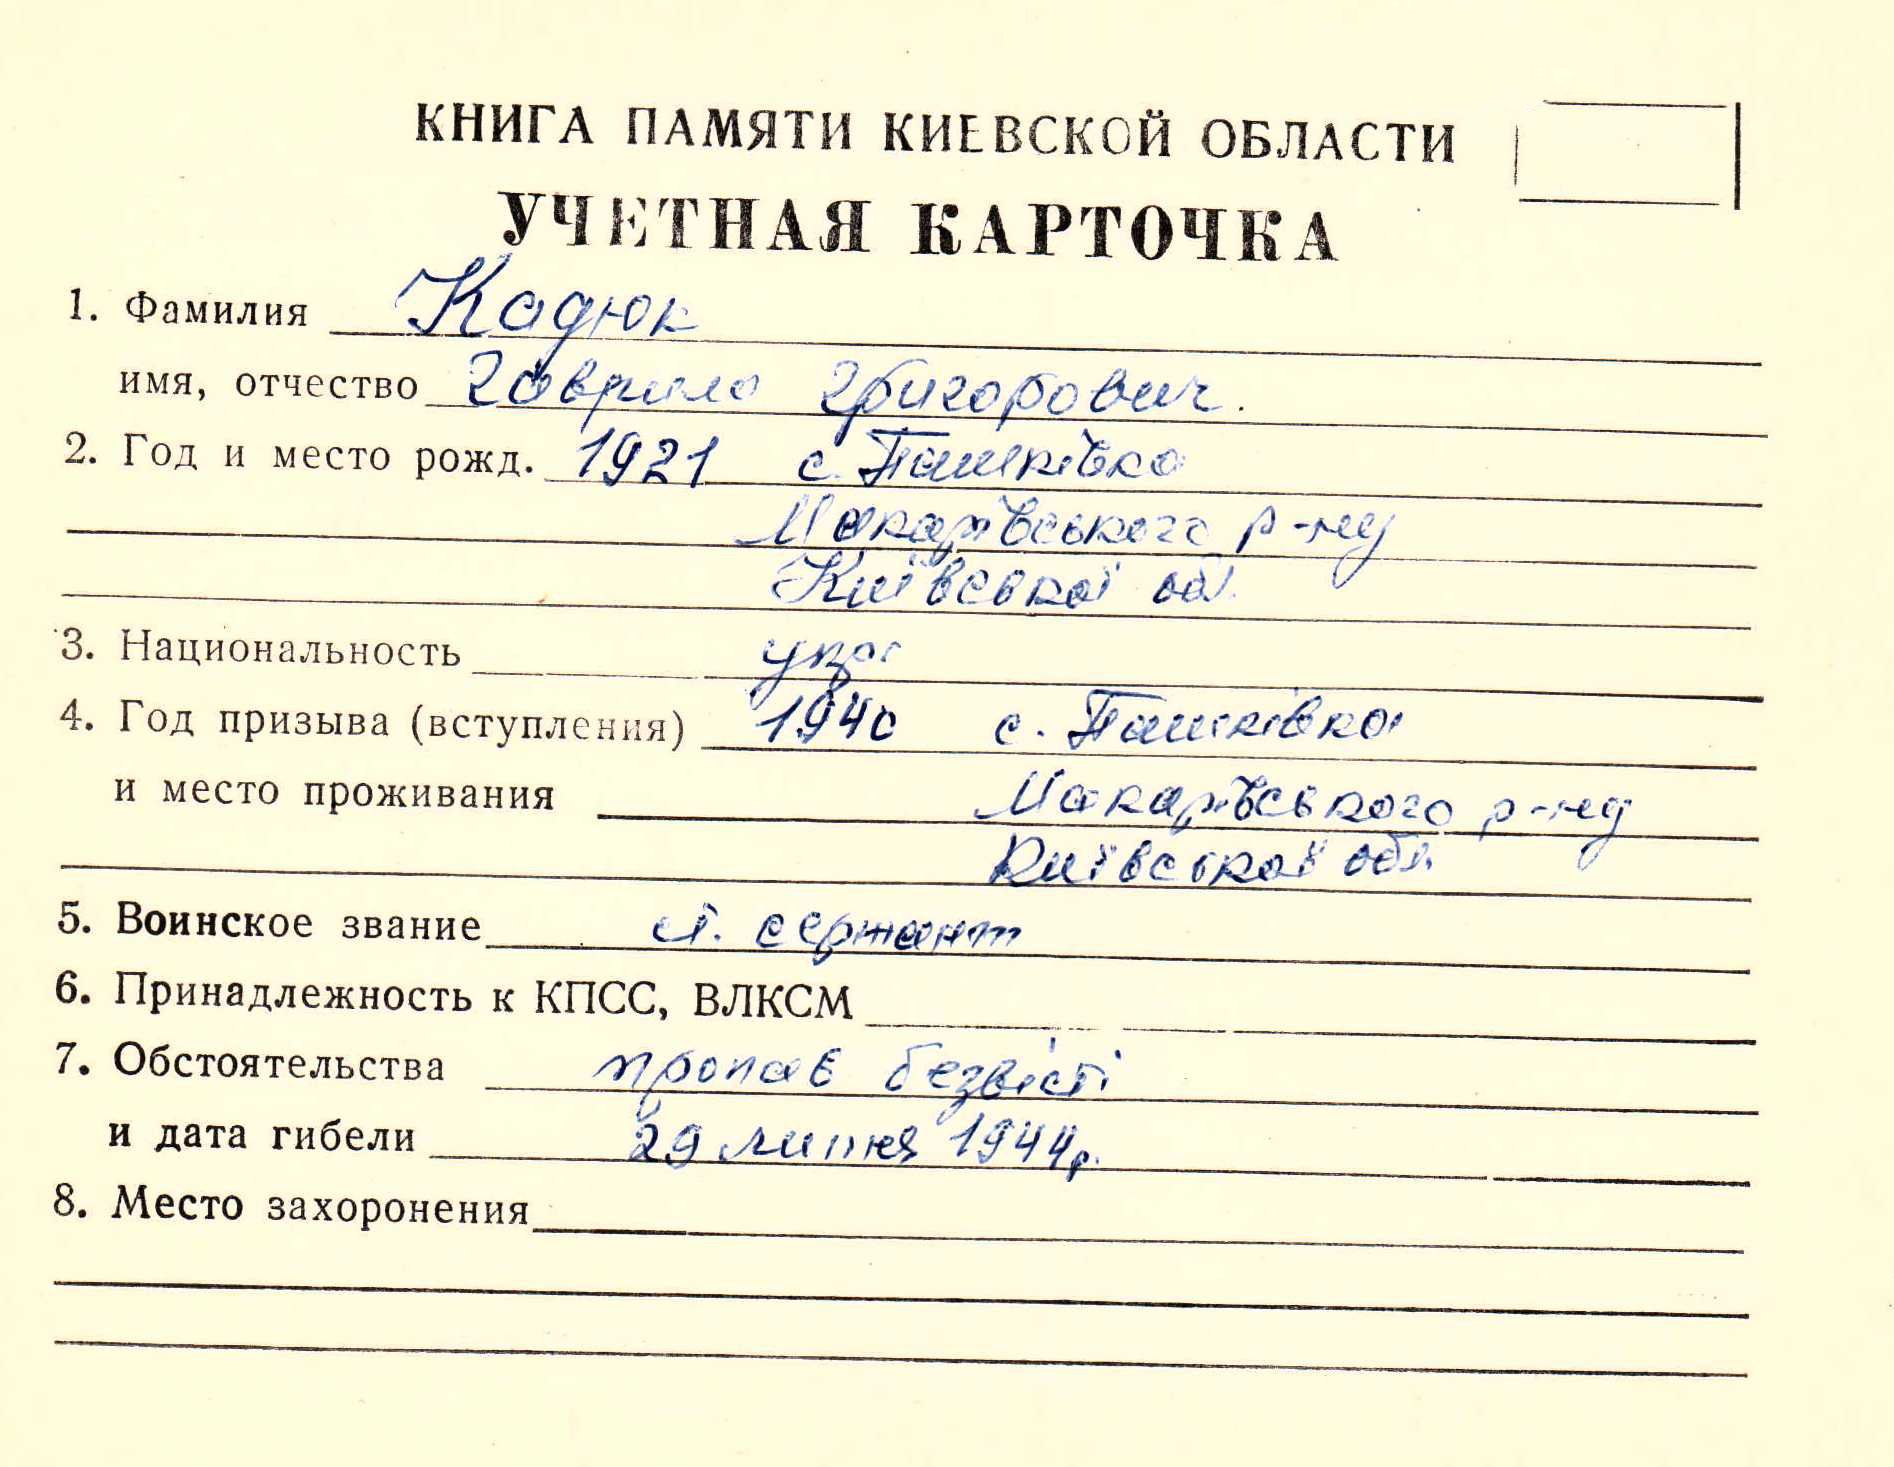 КНИГА ПАМЯТИ КИЕВСКОЙ ОБЛАСТИ
УЧЕТНАЯ КАРТОЧКА
1. Фамилия Кадюк
имя, отчество Гаврило Григорович.
2. Год и место рожд. 1921 с. Пашківка
Макарівського р-ну
Київської обл.
3. Национальность укр.
4. Год призыва (вступления) 1940 с. Пашківка
и место проживания Макарівського р-ну
Київської обл.
5. Воинское звание ст. сержант
6. Принадлежность к КПСС, ВЛКСМ
7. Обстоятельства пропав безвісті
и дата гибели 29 липня 1944р.
8. Место захоронения